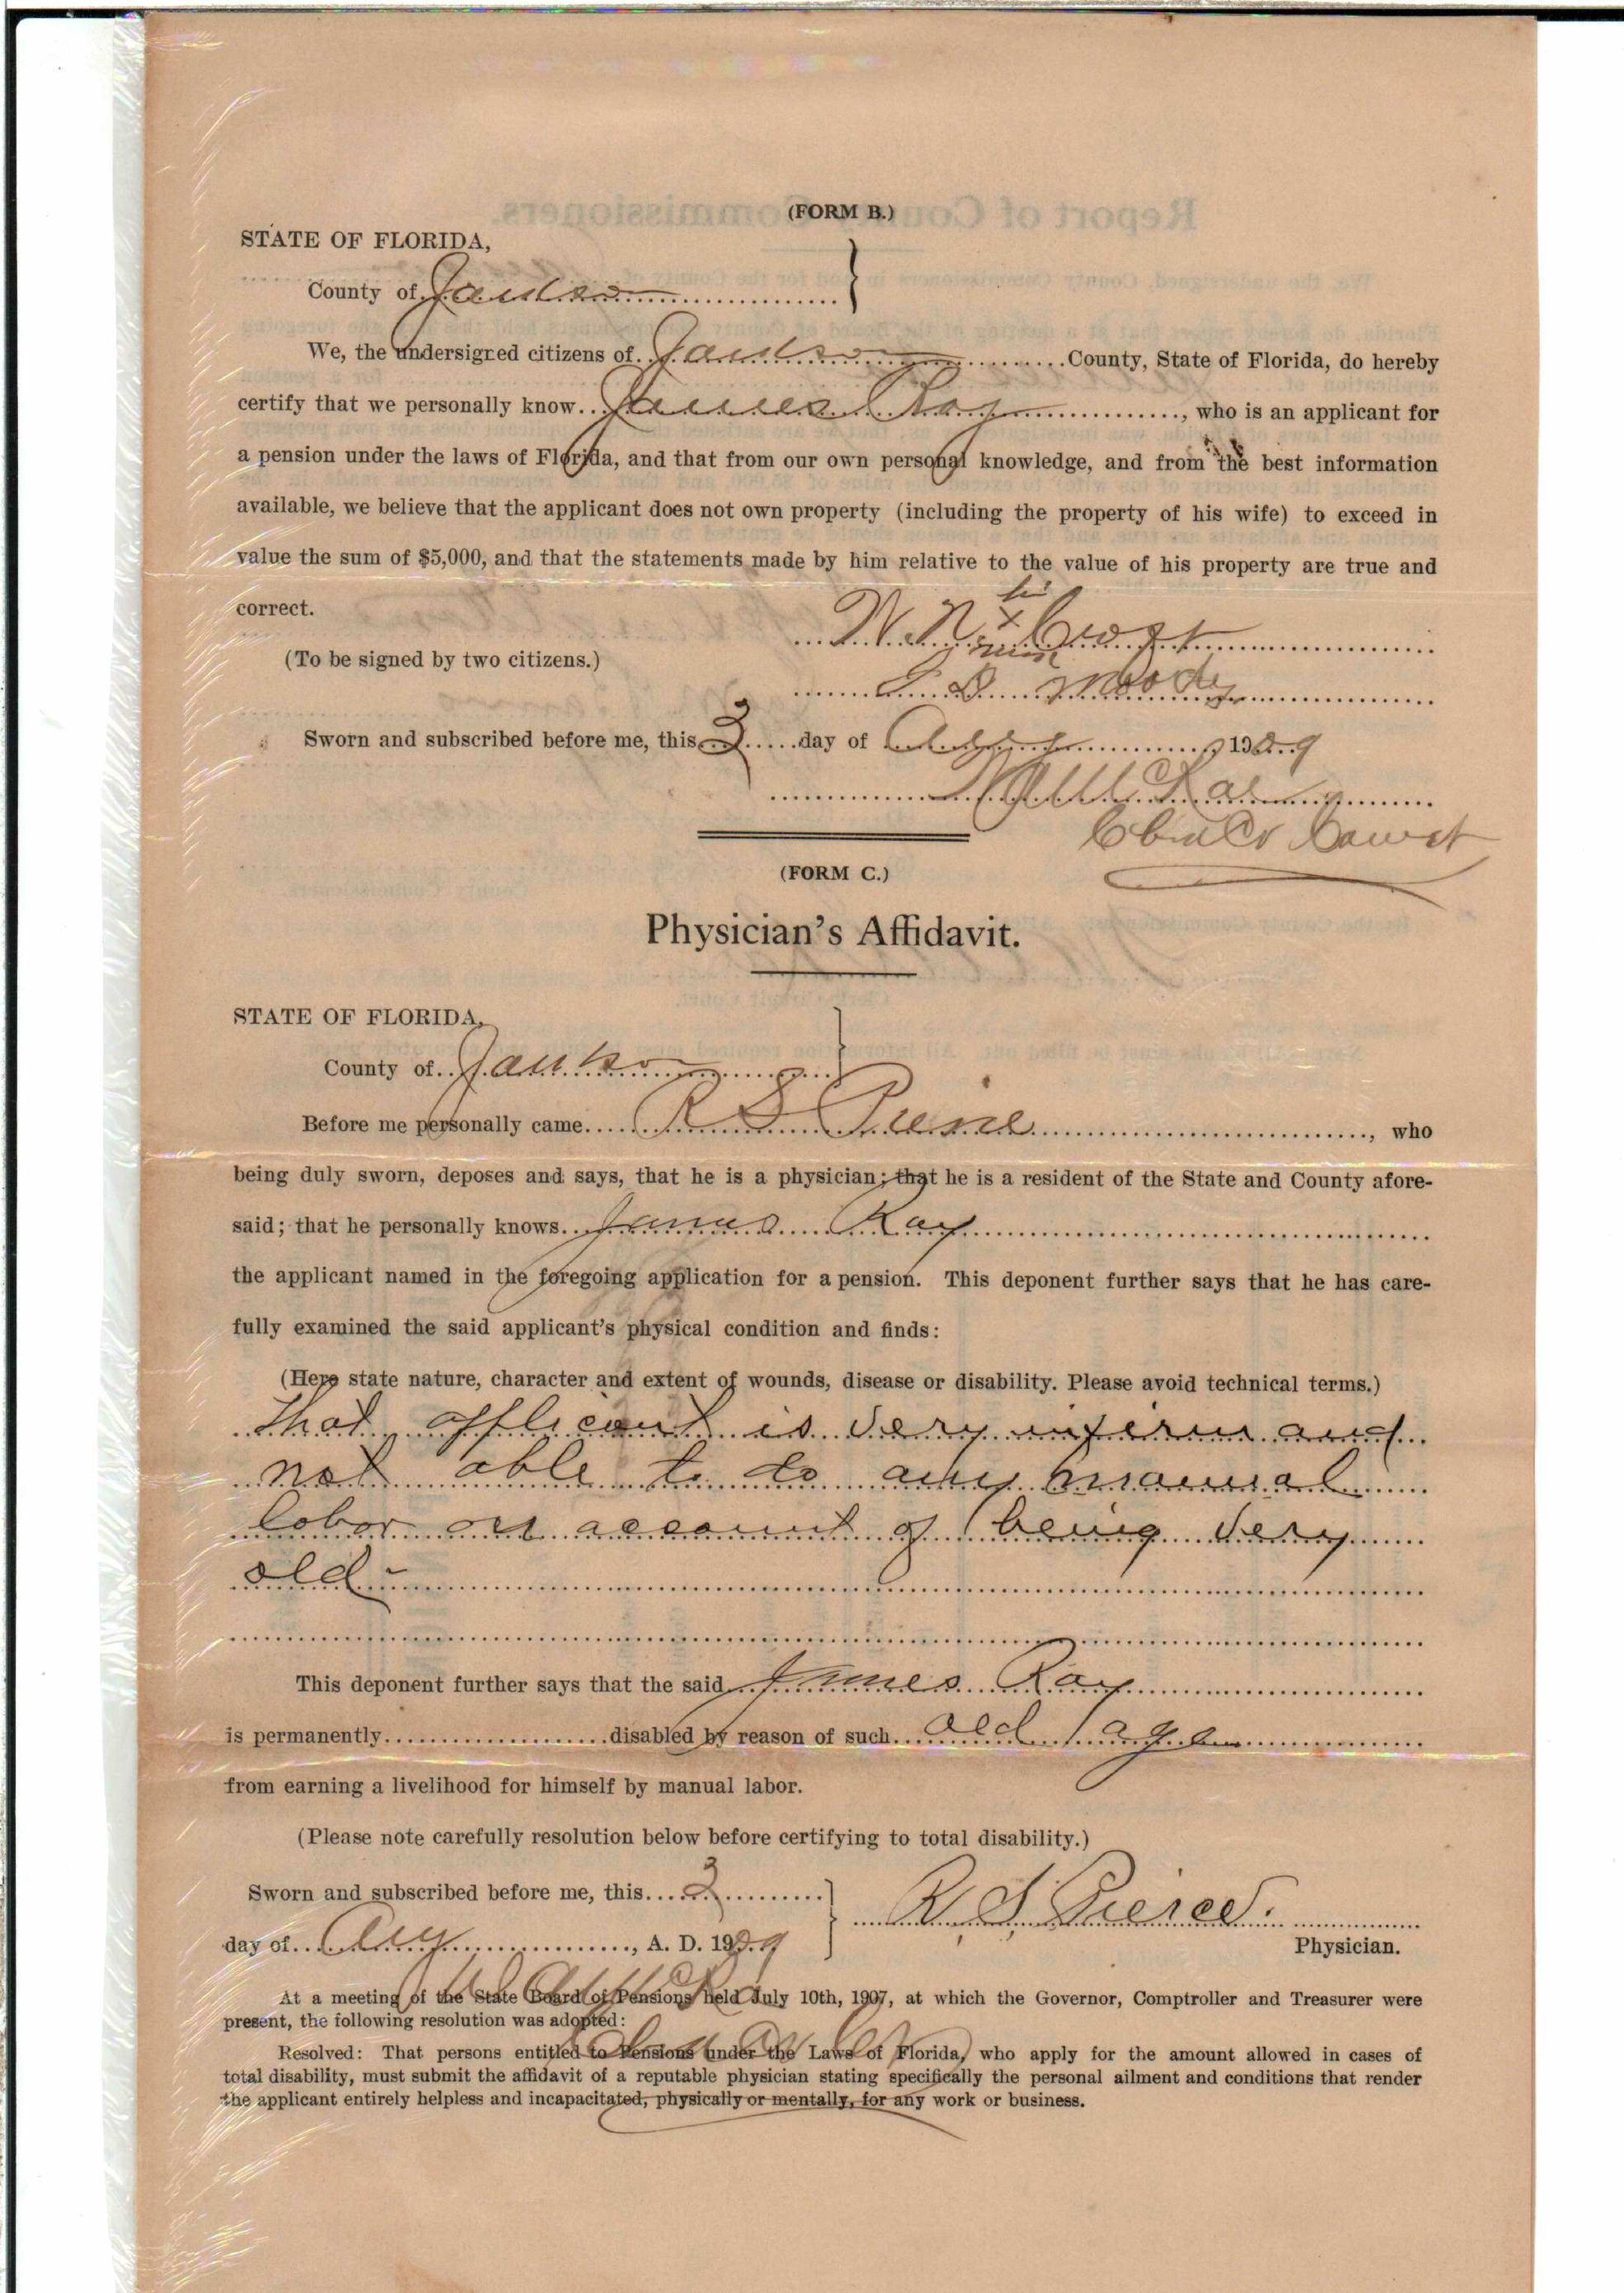 (FORM B.)
STATE OF FLORIDA,
County of Jackson
We, the undersigned citizens of Jackson County, State of Florida, do hereby
certify that we personally know James Ray, who is an applicant for
a pension under the laws of Florida, and that from our own personal knowledge, and from the best information
available, we believe that the applicant does not own property (including the property of his wife) to exceed in
value the sum of $5,000, and that the statements made by him relative to the value of his property are true and
correct.
his
W. N. x
mark
(To be signed by two citizens.)
Moody
Sworn and subscribed before me, this 3 day of 1909
(FORM C.)
Physician's Affidavit.
STATE OF FLORIDA,
County of Jackson
Before me personally came R S Pierce, who
being duly sworn, deposes and says, that he is a physician; that he is a resident of the State and County afore-
said; that he personally knows James Ray
the applicant named in the foregoing application for a pension. This deponent further says that he has care-
fully examined the said applicant's physical condition and finds:
(Here state nature, character and extent of wounds, disease or disability. Please avoid technical terms.)
that applicant is very infirm and
not able to do any manual
labor on account of being very
old-
This deponent further says that the said James Ray
is permanently disabled by reason of such old age
from earning a livelihood for himself by manual labor.
(Please note carefully resolution below before certifying to total disability.)
Sworn and subscribed before me, this 3
R. S. Pierce.
day of Aug, A. D. 1909
Physician.
At a meeting of the State Board of Pensions held July 10th, 1907, at which the Governor, Comptroller and Treasurer were
present, the following resolution was adopted:
Resolved: That persons entitled to Pensions under the Laws of Florida, who apply for the amount allowed in cases of
total disability, must submit the affidavit of a reputable physician stating specifically the personal ailment and conditions that render
the applicant entirely helpless and incapacitated, physically or mentally, for any work or business.